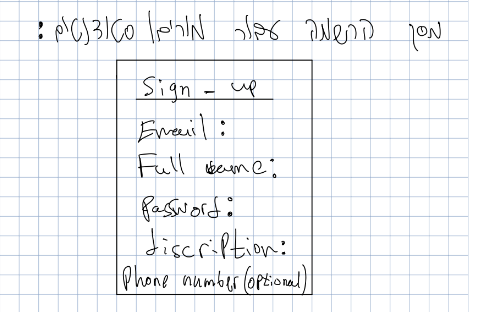 מסך הרשמה עבור מורים/סטודנטים:
Sign - up
Email:
Full name:
Password:
discription:
Phone number(optional)